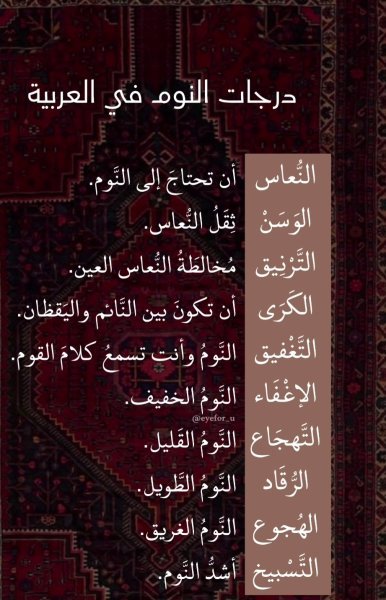 درجات النوم في العربية
النُّعاس أن تحتاجَ إلى النَّوم.
الوَسَنْ ثِقَلُ النُّعاس.
التَّرْنِيق مُخالطَةُ النُّعاس العين.
الكَرَى أن تكونَ بين النَّائم واليَقظان.
التَّغْفيق النَّومُ وأنت تسمعُ كلامَ القوم.
الإغْفَاء النَّومُ الخفيف.
@eyefor_u
التَّهجَاع النَّومُ القَليل.
الرُّقَاد النَّومُ الطَّويل.
الهُجوع النَّومُ الغريق.
التَّسْبيخ أشدُّ النَّوم.